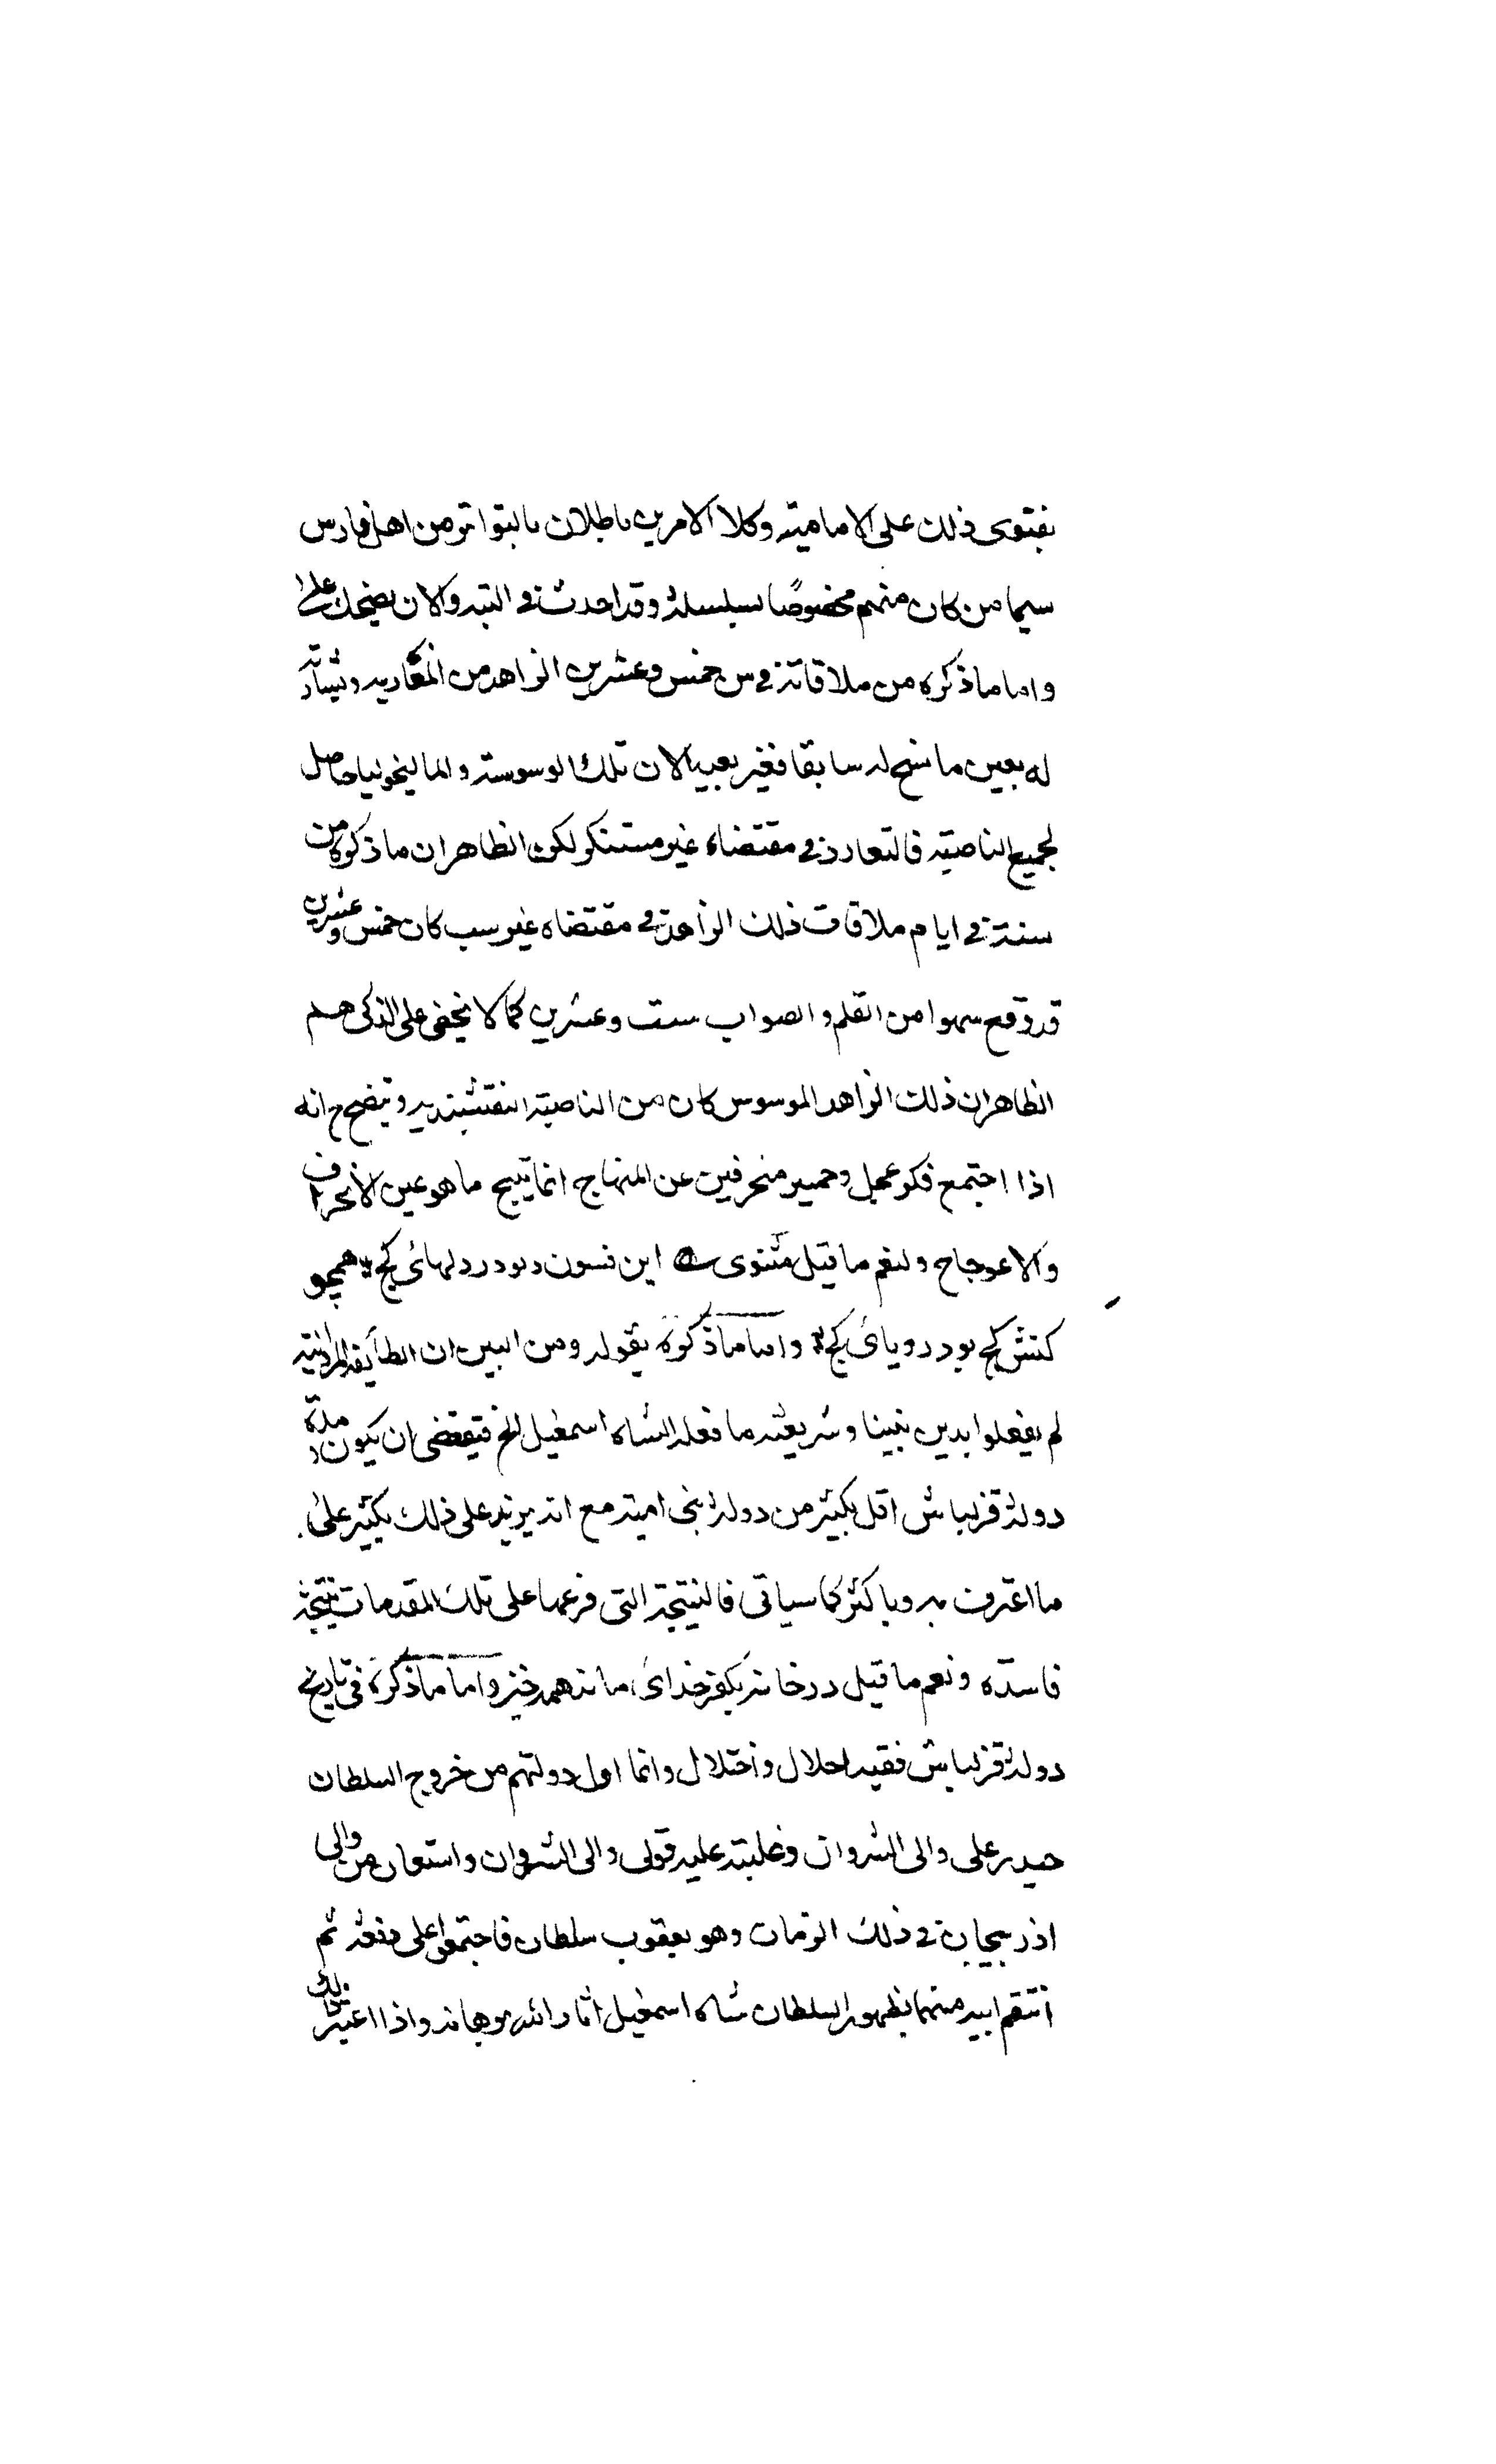 بفتوى ذلك على الامامية وكلا الامرين باطلان بالتواتر من اهل فارس
سيما من كان منهم مخصوصًا بسلسلة وقد احدث في التبه والان يضحك على
واما ما ذكره من ملاقاته في سن خمس وعشرين الزاهد من وبشارته
له بعين ما سنح له سابقا فغير بعيد لان تلك الوسوسة والماليخوليا حاصل
لجميع الناصبة فالتعارف في مقتضاه غير مستنكر لكن الظاهر ان ما ذكره من
سنة في ايام ملاقات ذلك الزاهد في مقتضاه غير سب كان خمس وعشرين
قد وقع سهوا من القلم والصواب ست وعشرين كما لا يخفى على الذكى هلم
الظاهر ان ذلك الزاهد الموسوس كان من الناصبة النقشبنديه ويتضح ح انه
اذا اجتمع فكر عجل وحمير منحرفين عن المنهاج انما ينتج ما هو عين الانحراف
والاعوجاج ولنعم ما قيل مثنوى اين فسون ديو در دلهائ كج همچو
كفش كج بود در وپائ كج واما ما ذكره بقوله ومن البين ان الطائفه المروانية
لم يفعلوا بدين نبينا وشريعته ما فعله الشاه اسمعيل الخ فيقتضى ان يكون مدة
دولة قزلباش اقل بكثير من دولة بنى امية مع انه يزيد على ذلك بكثير على
ما اعترف به وباكثر كما سياتى فالنتيجة التى فرعها على تلك المقدمات نتيجة
فاسدة ونعم ما قيل در خانه بكفر خداى ماند همه چيز واما ما ذكره فى تاريخ
دولة قزلباش ففيه اخلال واختلال وانما اول دولتهم من خروج السلطان
حيدر على والى الشروان وغلبته عليه قولى والى الشروان واستعان من والى
اذربيجان في ذلك الزمان وهو يعقوب سلطان فاجتمعوا على دفعه ثم
انتقم ابيه منهما بظهور السلطان شاه اسمعيل انار الله برهانه واذا اعتبر ذلك